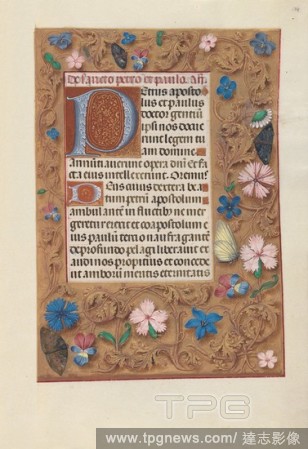 De sancto petro et paulo. Añ.
Petrus aposto
lus et paulus
doctor gentiū
ipsi nos docue
runt legem tu
am domine.
Annūtiauerunt opera dñi. Et fa
cta eius intellexerunt. Oremus
Deus cuius dextera bea
tum petrū apostolum
ambulantē in fluctibꝰ ne mer
geretur erexit et coapostolum e
ius paulū tercio naufragantē
de profundo pelagi liberauit ex
audi nos propitius et concede
ut amborū meritis eternitatis
TPG
www.tpgnews.com/ 達志影像